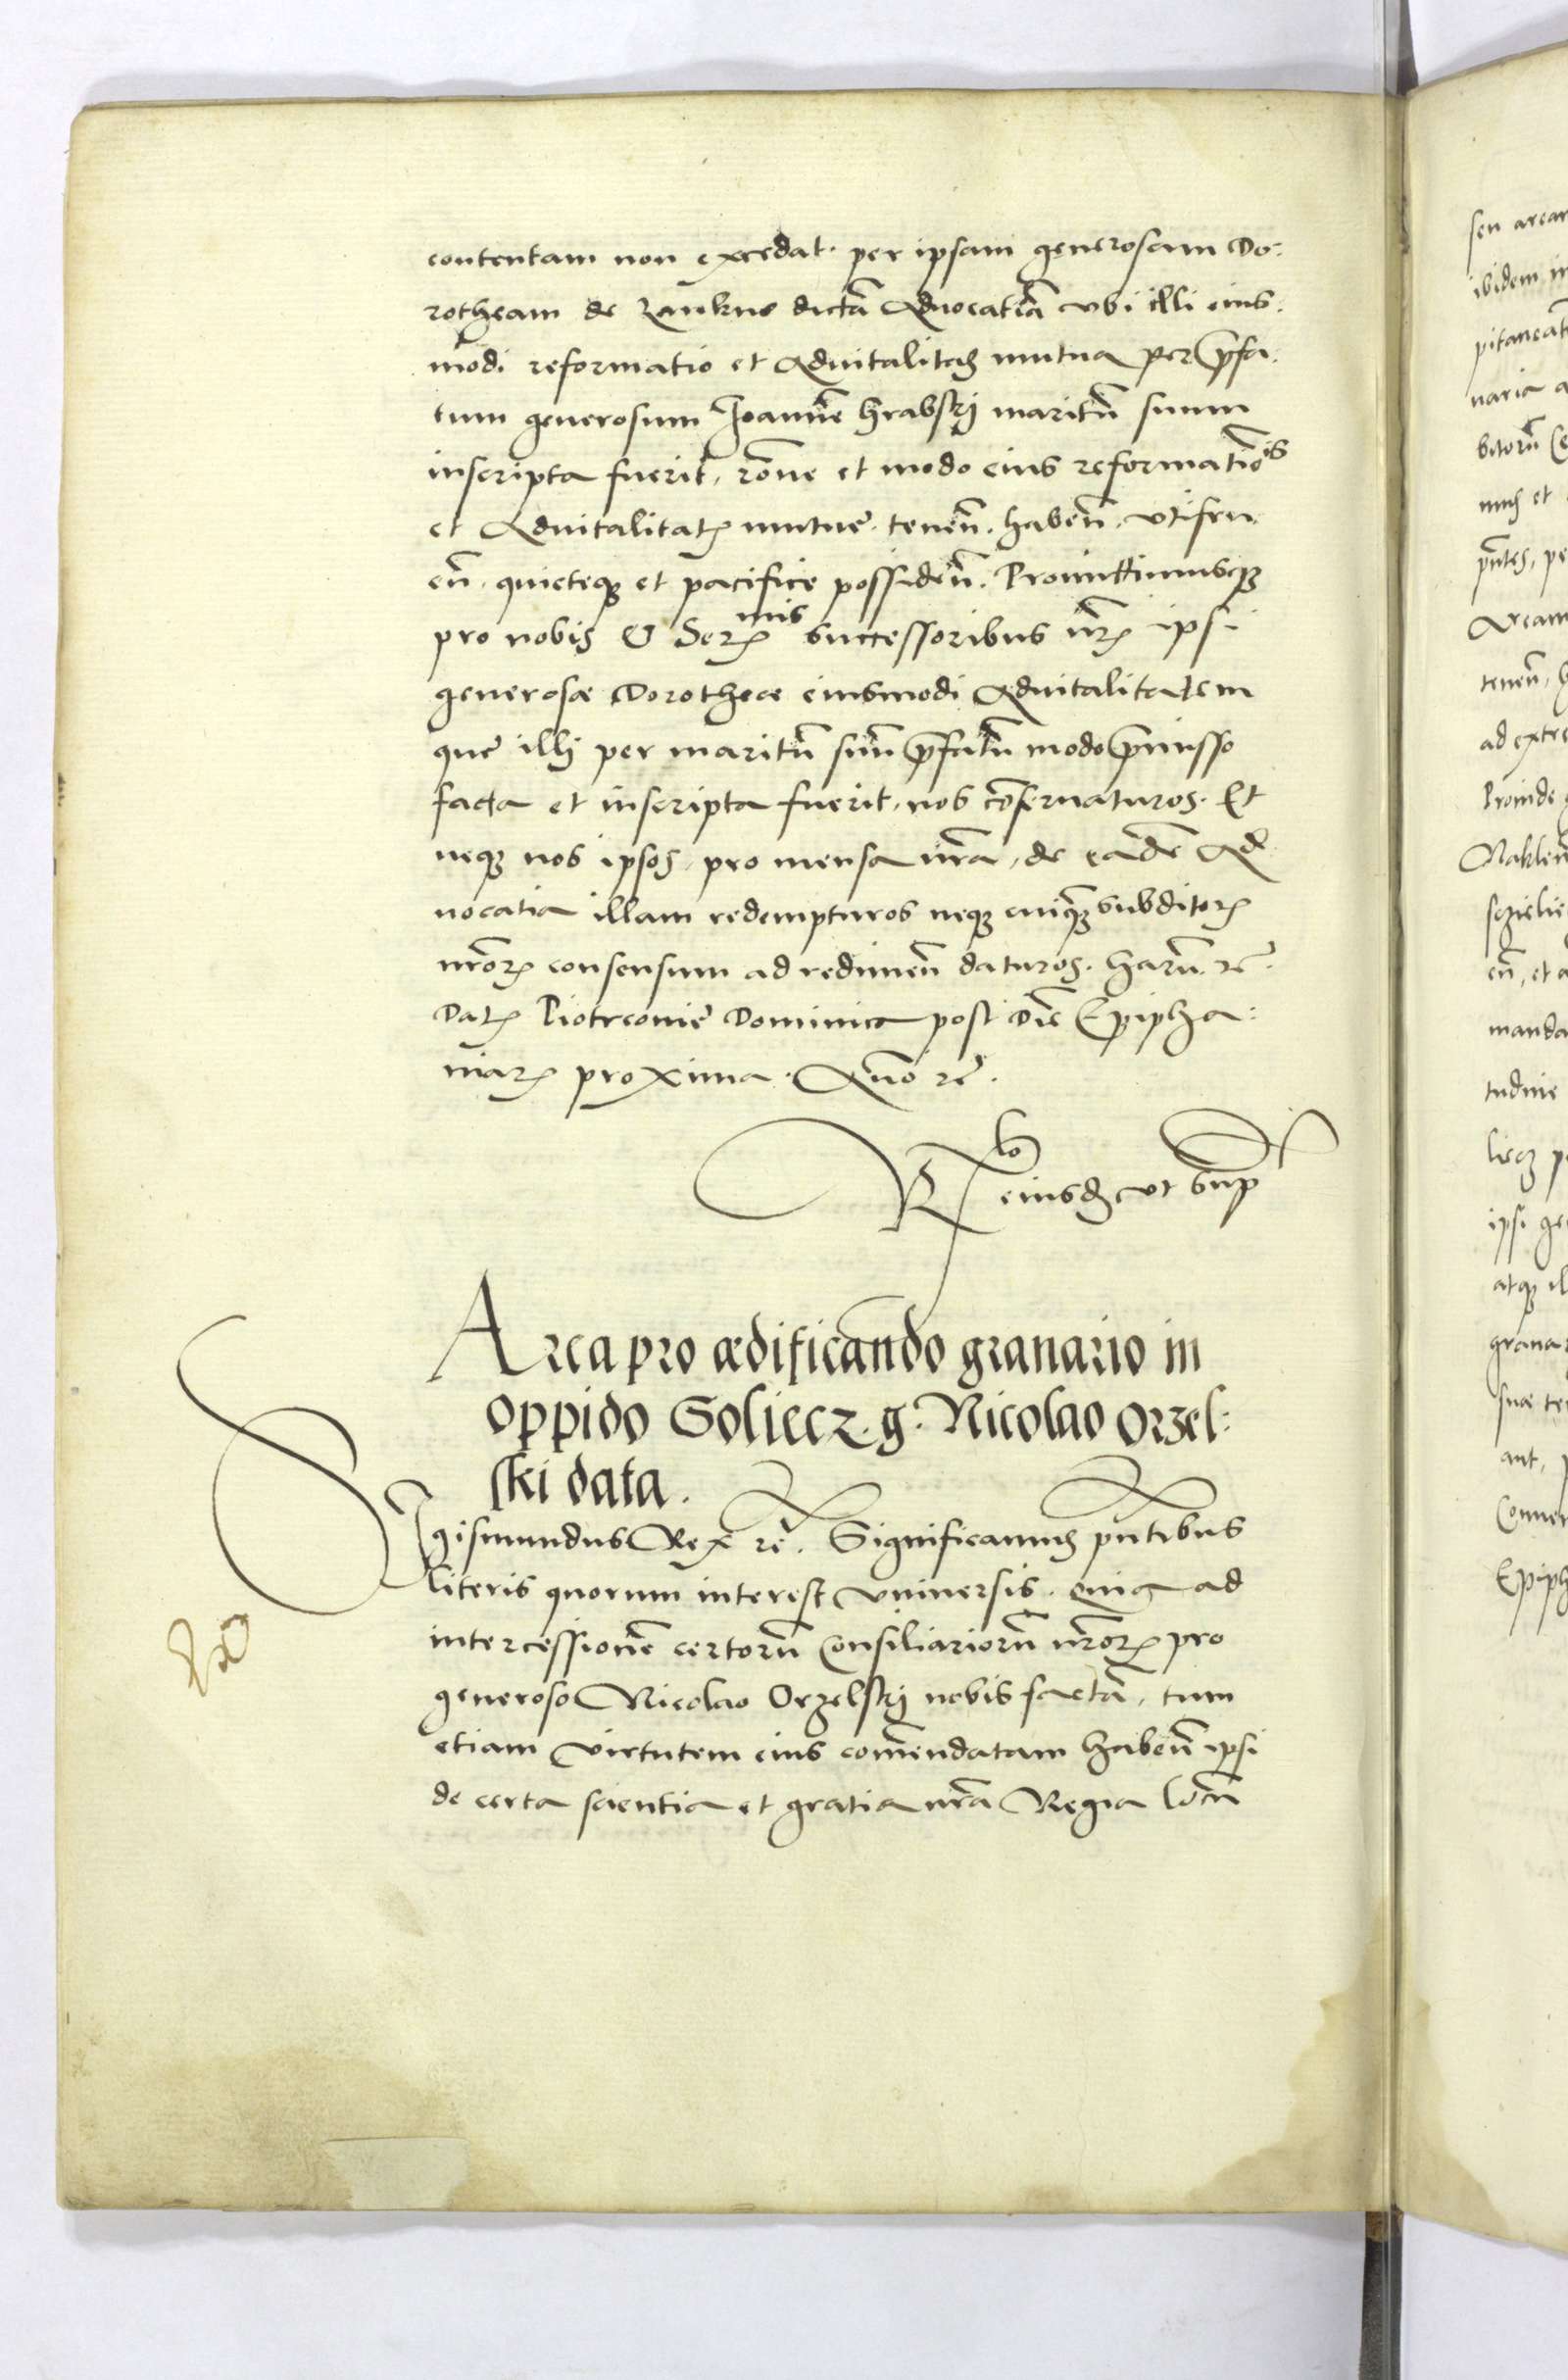 contentam non excedat. per ipsam generosam Do:
rotheam de Zankno dictã Aduocatiã vbi illi eius.
modi reformatio et Aduitalitas mutua per p̃fa.
tum generosum Joannẽ Grabskj maritũ suum
inscripta fuerit, rõne et modo eius reformatiõis
et Aduitalitatꝭ mutuę. tenẽn. habẽn. vtifru
eñ. quieteqꝫ et pacifice possideñ. Promittimusqꝫ
pro nobis & Serꝭmis successoribus nr̃ꝭ ipsi
generosæ Dorotheæ eiusmodi Aduitalitatem
quę illj per maritũ suũ p̃fatũ modo p̃misso
facta et inscripta fuerit, nos cõseruaturos. Et
neqꝫ nos ipsos, pro mensa nr̃a, de eadẽ Ad
uocatia illam redempturos neqꝫ cuiqꝫ subditoꝝ
nr̃oꝝ consensum ad redimeñ daturos. harũ. rc̃.
Datꝭ Piotrcouię Dominica post diẽ Epipha:
niaꝝ proxima. Año rc̃.
Rlo eiusdẽ vt sup
Area pro ædificando granario in
oppido Soliecz. g. Nicolao Orzel:
ski data.
Sigismundus Rex rc̃. Significamus pñtibus
literis quorum interest vniuersis. quia ad
intercessionẽ certorũ Consiliariorũ nr̃oꝝ pro
generoso Nicolao Orzelskj nobis factã, tum
etiam virtutem eius com̃endatam habeñ ipsi
de certa scientia et gratia nr̃a Regia locũ
seu arear
ibidem in
pitaneat
naria a
bitorũ
mus et
pñtes, pe
Aream
teneñ, h
ad extre
Proinde
Naklen
eñ, et a
manda
tudine
ipsi ge
atqꝫ il
grana
suæ te
ant,
Epiph